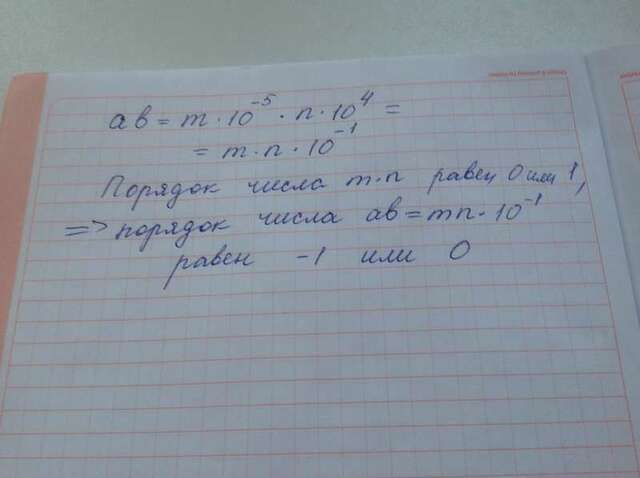 ab = m · 10⁻⁵ · n · 10⁴ =
= m · n · 10⁻¹
Порядок числа m·n равен 0 или 1,
=> порядок числа ab = mn · 10⁻¹
равен -1 или 0